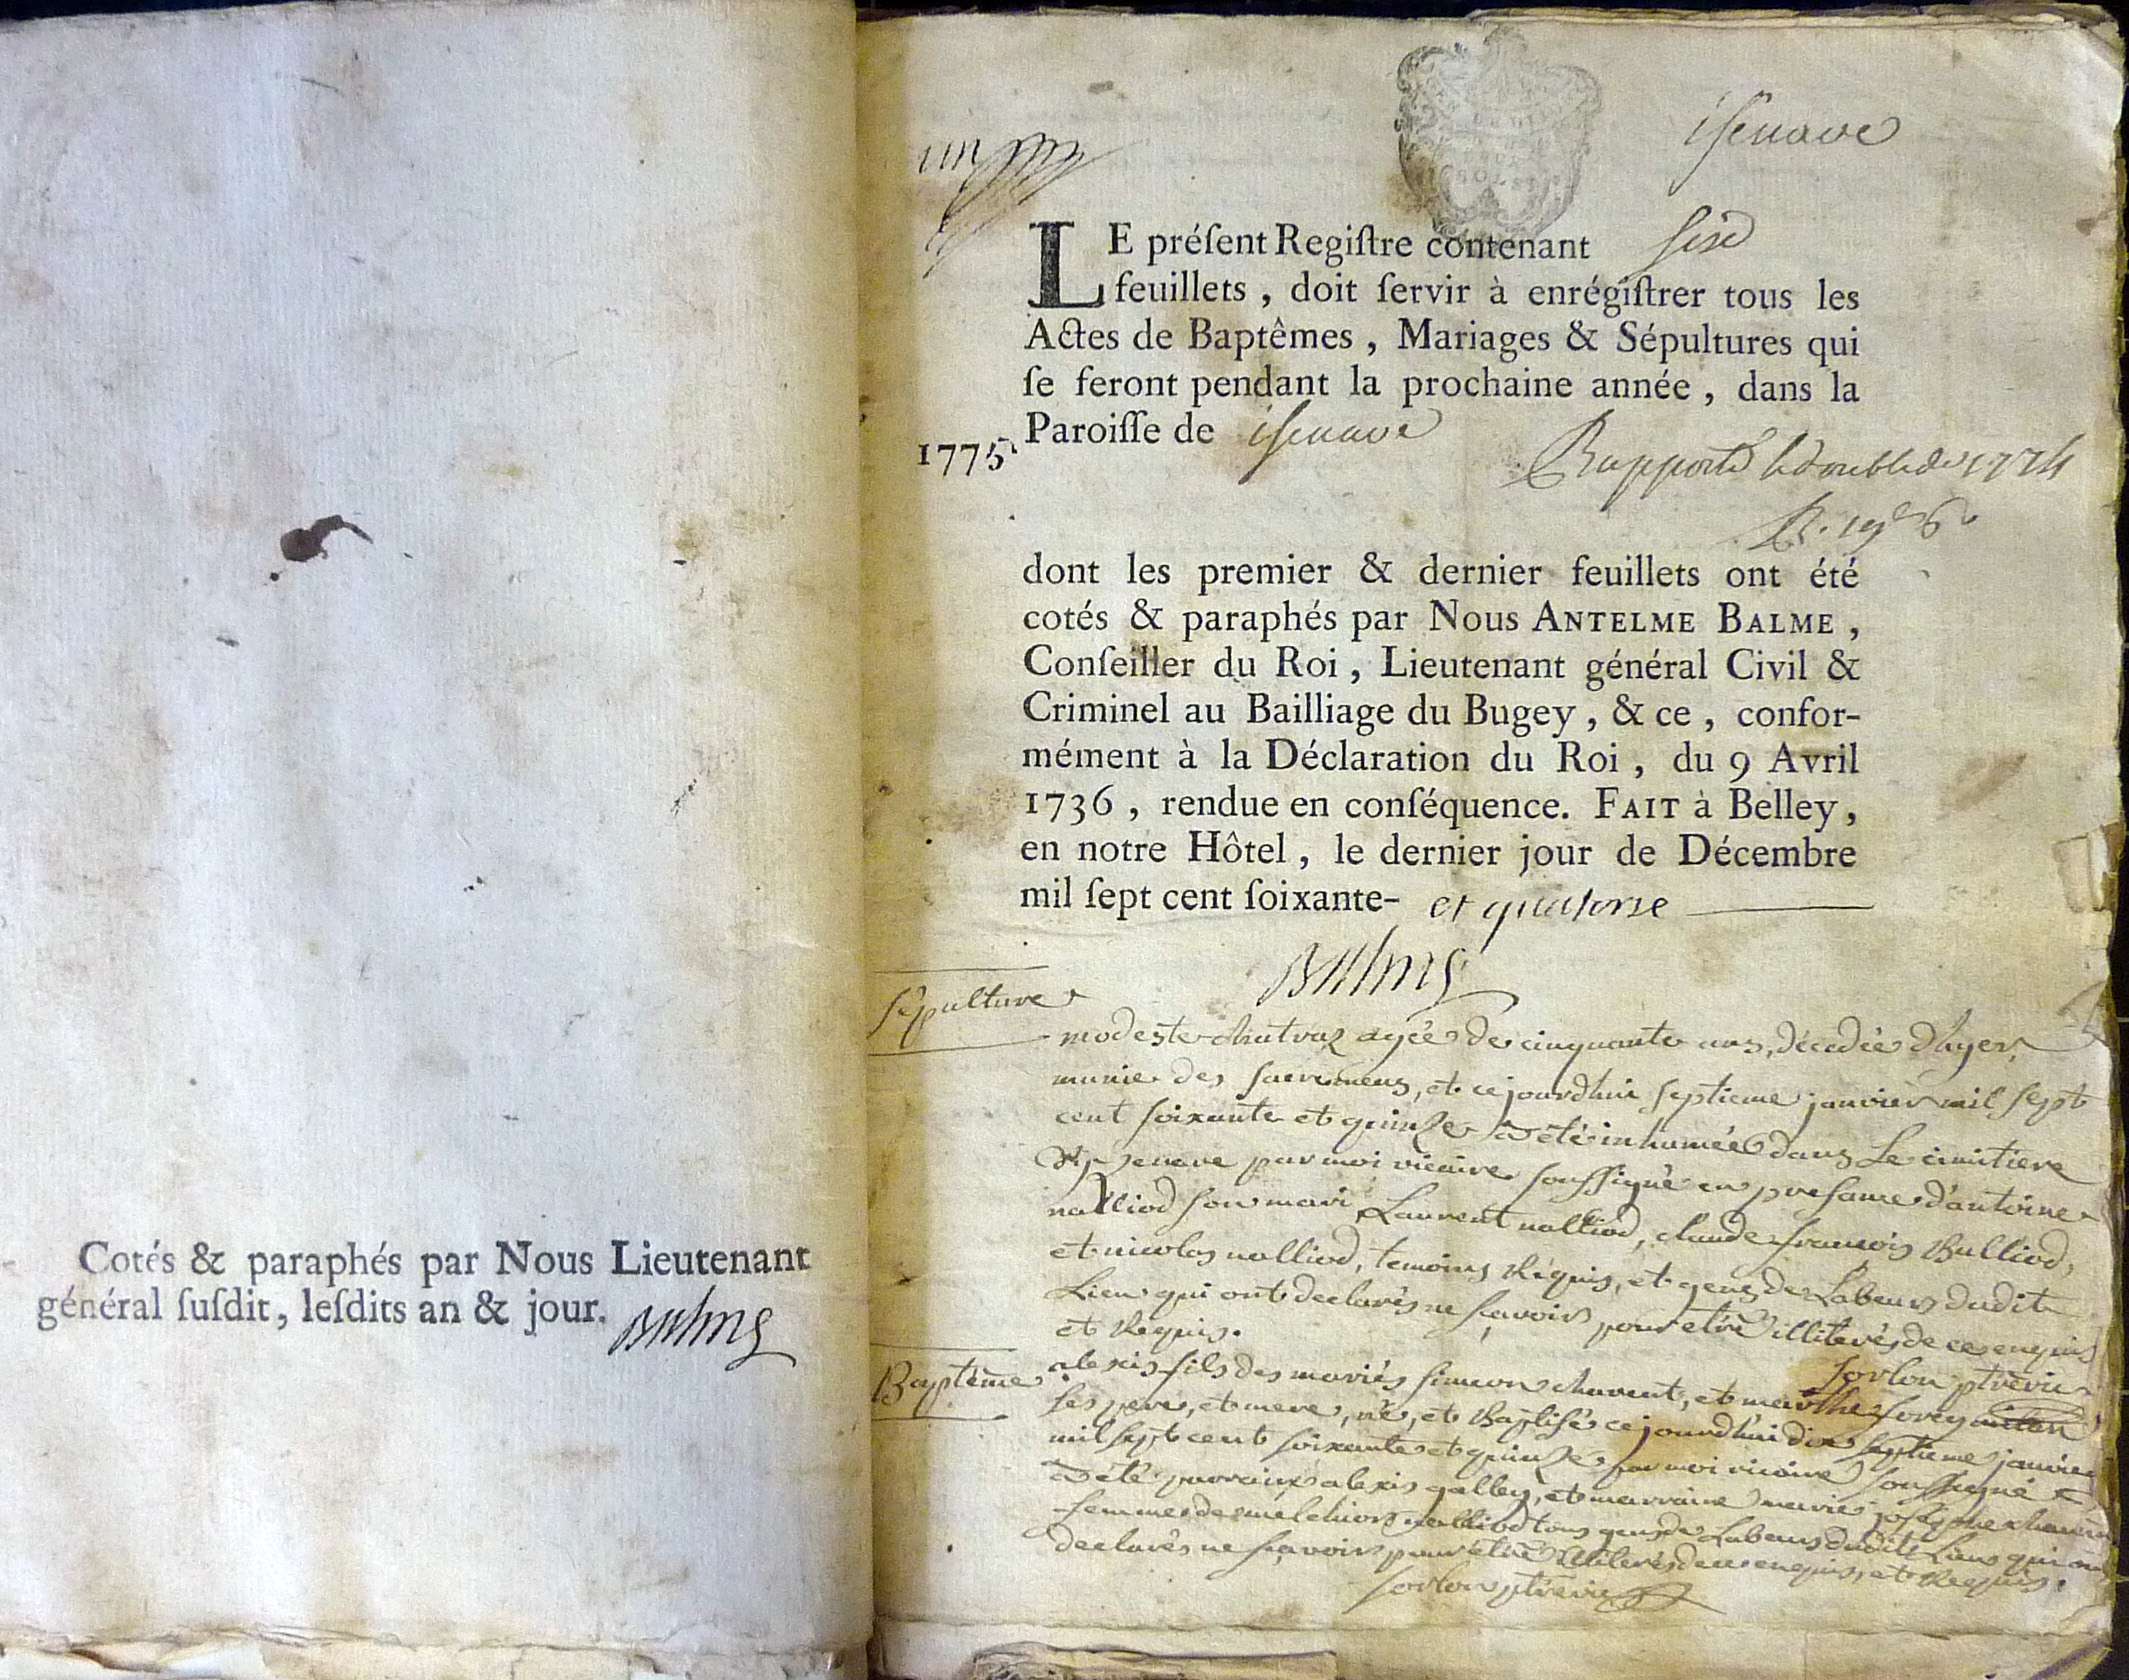 Cotés & paraphés par Nous Lieutenant
général ſuſdit, leſdits an & jour. Balme
un
iſenave
LE préſent Regiſtre contenant six
feuillets , doit ſervir à enrégiſtrer tous les
Actes de Baptêmes , Mariages & Sépultures qui
ſe feront pendant la prochaine année , dans la
Paroiſſe de iſenave
1775.
Rapporté le double de 1774
dont les premier & dernier feuillets ont été
cotés & paraphés par Nous ANTELME BALME ,
Conſeiller du Roi , Lieutenant général Civil &
Criminel au Bailliage du Bugey , & ce , confor-
mément à la Déclaration du Roi , du 9 Avril
1736 , rendue en conſéquence. FAIT à Belley ,
en notre Hôtel , le dernier jour de Décembre
mil ſept cent ſoixante- et quatorse
Balme
sépulture
modeste chatraz agée de cinquante ans, décedée d'hyer,
munie des sacremens, et ce jourdhui septieme janvier mil sept
cent soixante et quinze a été inhumée dans Le cimitiere
d'isenave par moi vicaire soussigné en presance d'antoine
nalliod son mari, Laurent nalliod, claude francois Bulliod,
et nicolas nalliod, temoins Requis, et gens de Labeur dudit
Lieu qui ont declarés ne sçavoir pour etre illiterés de ce enquis
et Requis.
sorlon ptre vic
Baptême
alexis fils des mariés simeon chavent, et marthe
ses pere, et mere, né, et Baptisé ce jourdhui dix septieme janvier
mil sept cent soixante et quinze par moi vicaire soussigné
a été parrain alexis galley, et marraine marie josephe
femme de melchior nalliod tous gens de Labeur dudit Lieu qui ont
declarés ne sçavoir pour etre illiterés de ce enquis, et Requis.
sorlon ptre vic